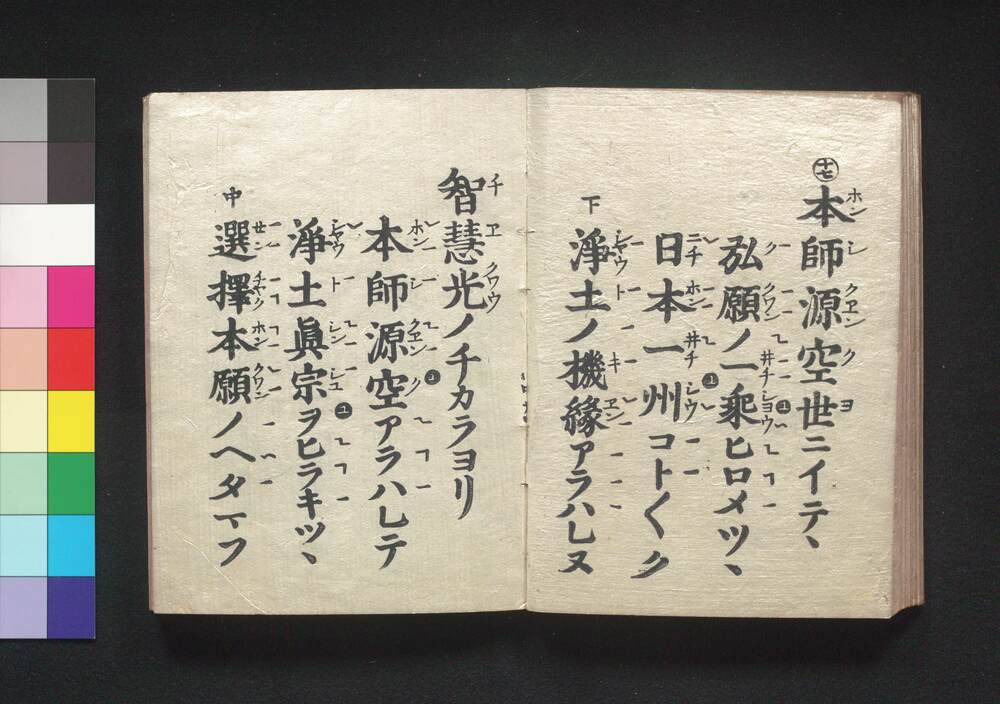 十七 本師源空世ニイテヽ
弘願ノ一乘ヒロメツヽ
日本一州コト〱ク
下 淨土ノ機縁アラハレヌ
智慧光ノチカラヨリ
本師源空アラハレテ
淨土眞宗ヲヒラキツヽ
中 選擇本願ノヘタマフ